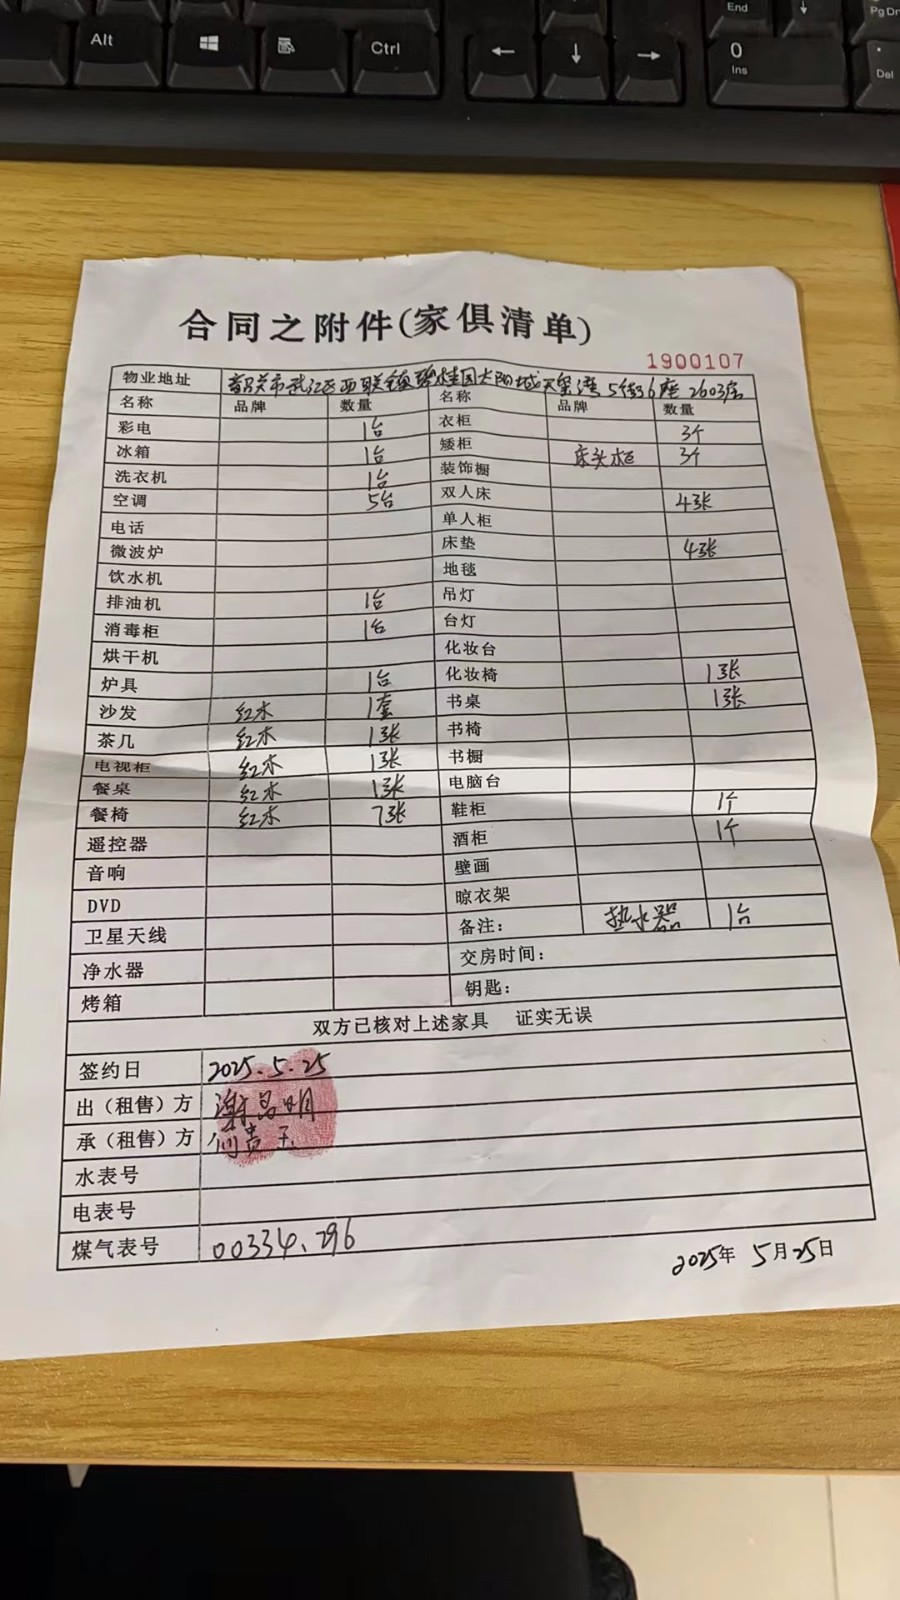 End
PgDn
Alt
Ctrl
← ↓ →
0
Ins
.
Del
合同之附件(家俱清单)
1900107
物业地址 韶关市武江区西联镇碧桂园太阳城天玺湾5街6座2603房
名称 品牌 数量 名称 品牌 数量
彩电 1台 衣柜 3个
冰箱 1台 矮柜 床头柜 3个
洗衣机 1台 装饰橱
空调 5台 双人床 4张
电话 单人柜
微波炉 床垫 4张
饮水机 地毯
排油机 1台 吊灯
消毒柜 1台 台灯
烘干机 化妆台
炉具 1台 化妆椅 1张
沙发 红木 1套 书桌 1张
茶几 红木 1张 书椅
电视柜 红木 1张 书橱
餐桌 红木 1张 电脑台
餐椅 红木 7张 鞋柜 1个
遥控器 酒柜 1个
音响 壁画
DVD 晾衣架
卫星天线 备注: 热水器 1台
净水器 交房时间:
烤箱 钥匙:
双方已核对上述家具 证实无误
签约日 2025.5.25
出（租售）方 谢昌明
承（租售）方
水表号
电表号
煤气表号 00334.296
2025年 5月25日